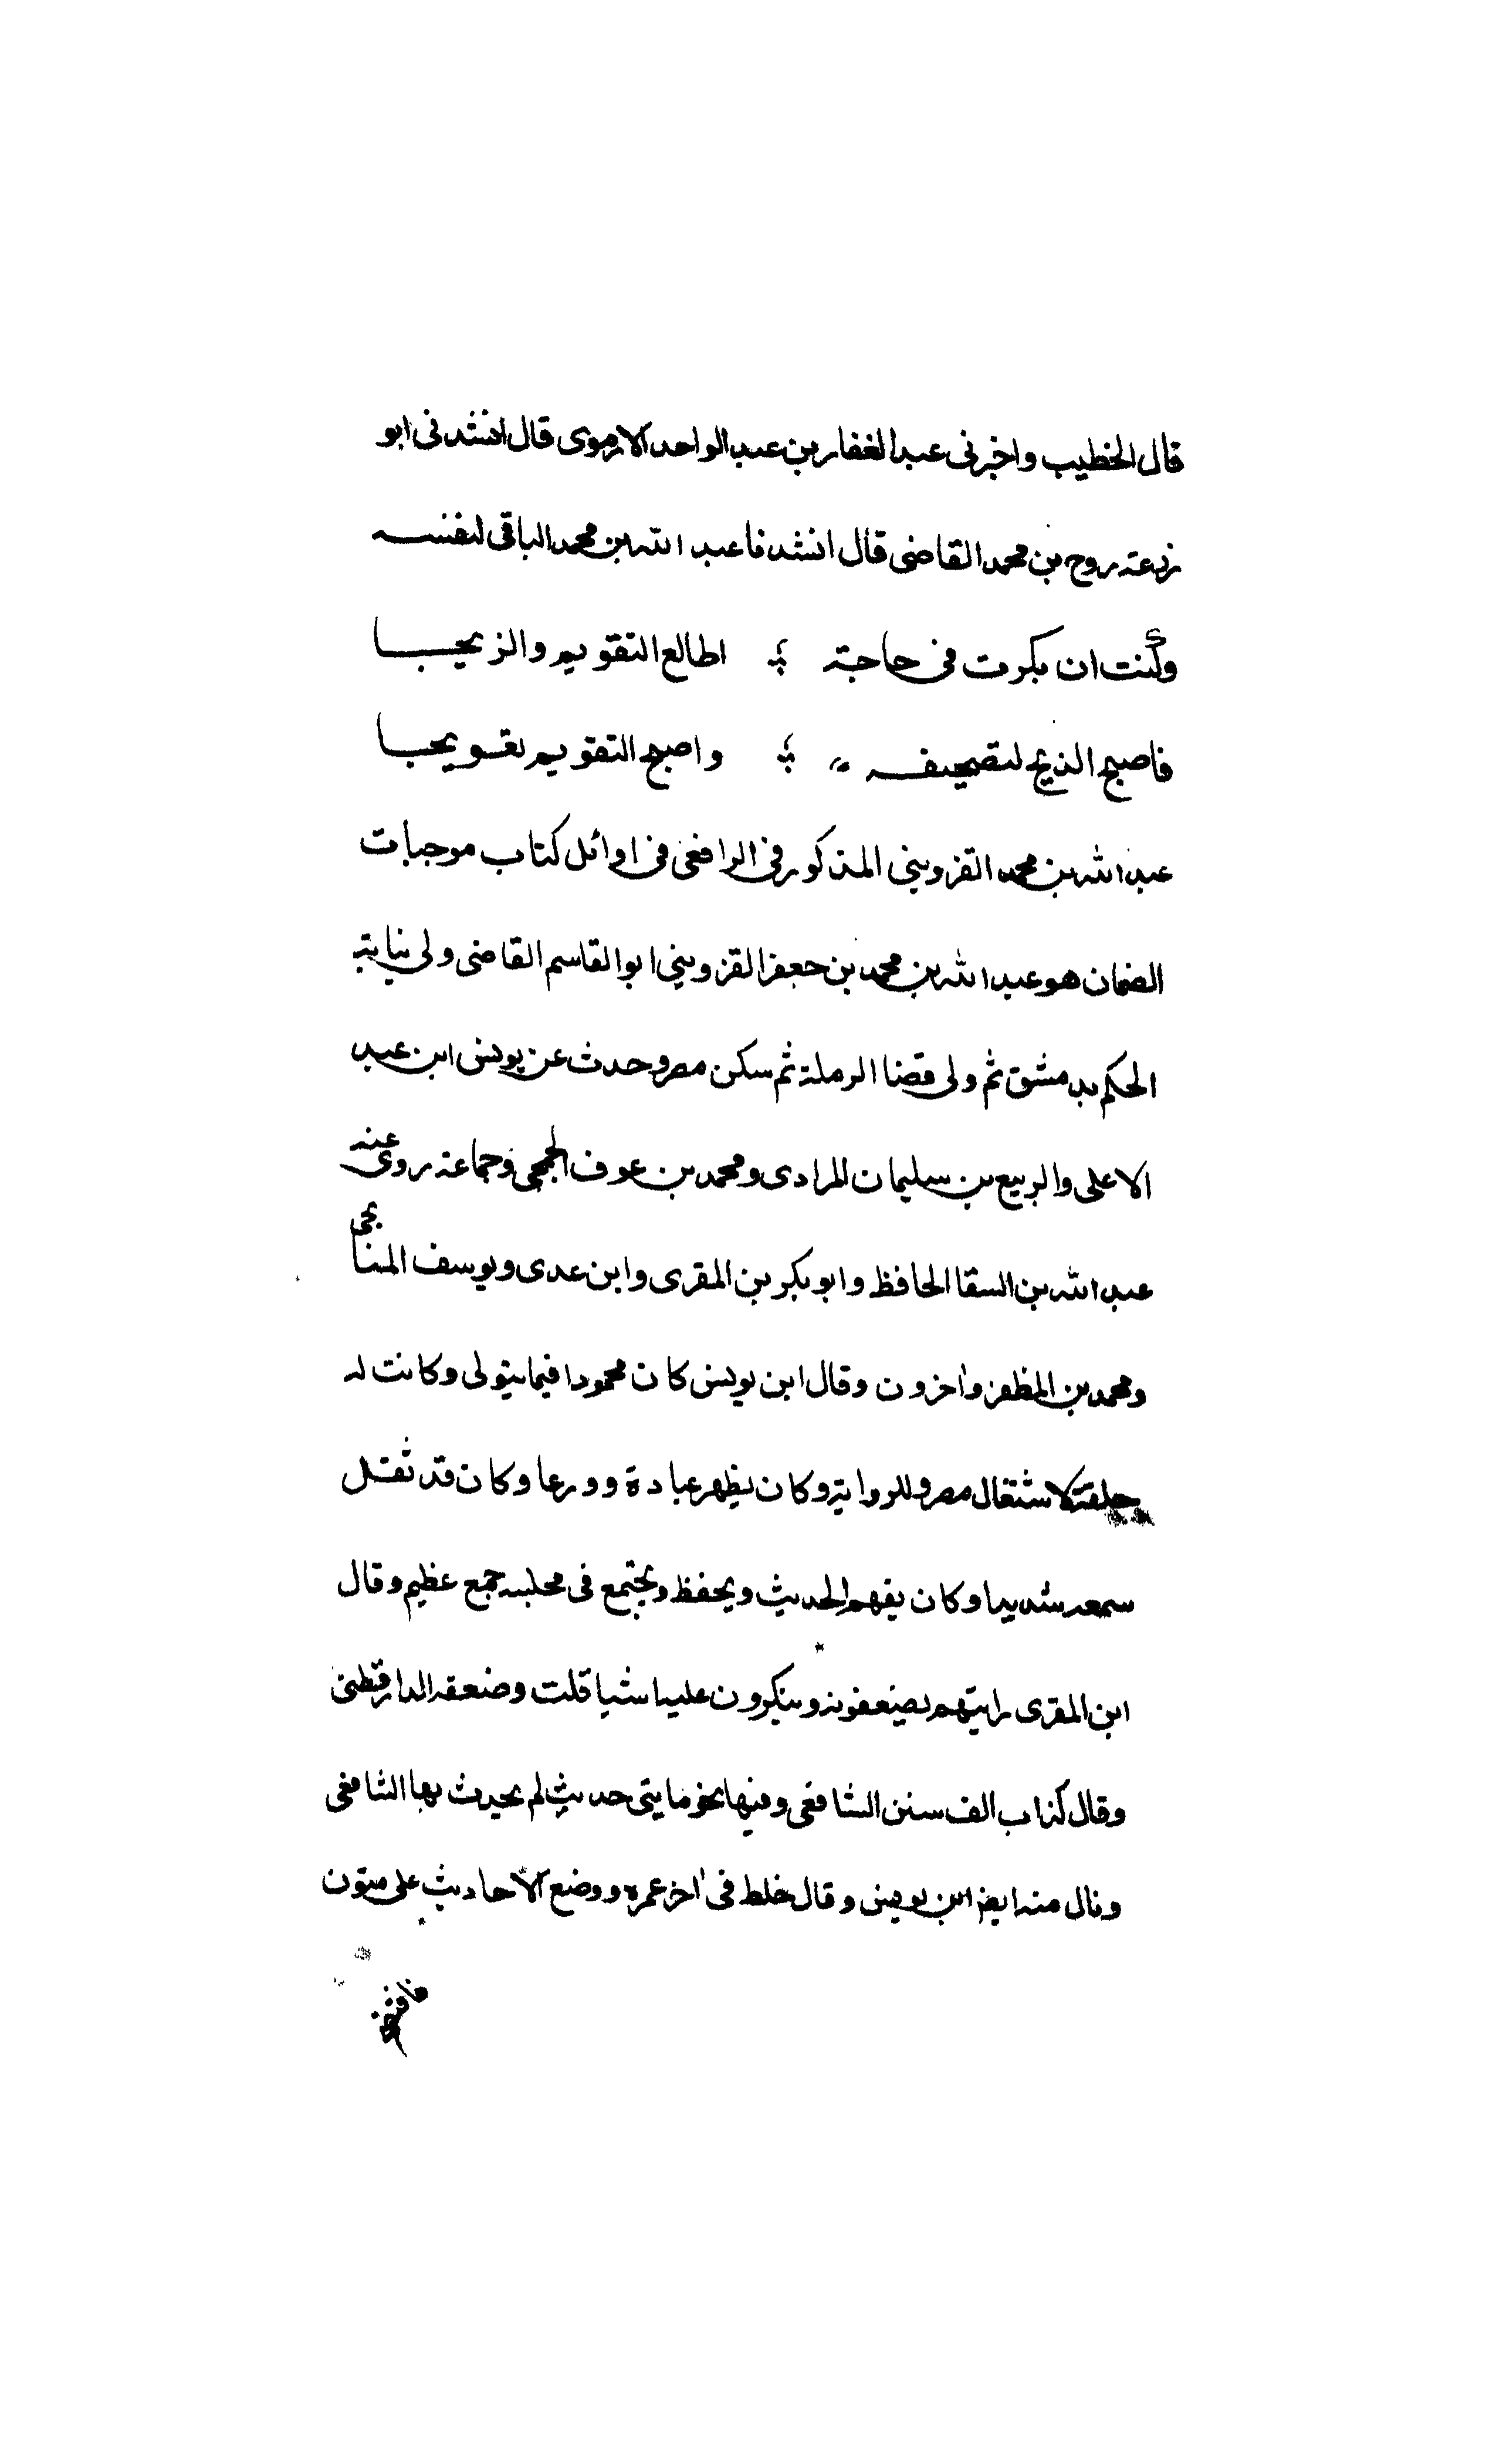 قال الخطيب واخبرني عبد الغفار بن عبد الواحد الارموى قال انشدنى ابو
زرعة روح بن محمد القاضى قال انشدنا عبد الله بن محمد الباقى لنفسه
وكنت ان بكرت فى حاجة اطالع التقويم والزيجا
فاصبح الزيج لتصحيفه واصبح التقويم تعويجا
عبد الله بن محمد القزويني المذكور فى الرافعى فى اوائل كتاب موجبات
الضمان هو عبد الله بن محمد بن جعفر القزويني ابو القاسم القاضى ولى نيابة
الحكم بدمشق ثم ولى قضا الرملة ثم سكن مصر وحدث عن يونس ابن عبد
الاعلى والربيع بن سليمان المرادى ومحمد بن عوف الجمحى وجماعة روى عنه
عبد الله بن السقا الحافظ وابو بكر بن المقرى وابن عدى ويوسف الميانجى
ومحمد بن المظفر واخرون وقال ابن يونس كان محمودا فيما يتولى وكانت له
حلقة لاشتغال مصر وللرواية وكان يظهر عبادة وورعا وكان قد ثقل
سمعه شديدا وكان يفهم الحديث ويحفظ ويجتمع فى مجلسه جمع عظيم وقال
ابن المقرى رايتهم يضعفونه وينكرون عليه اشيا قلت وضعفه الدارقطنى
وقال كذاب الف سنن الشافعى وفيها نحو مايتى حديث لم يحدث بها الشافعى
ونال منه ايضا ابن يونس وقال خلط فى اخر عمره ووضع الاحاديث على متون